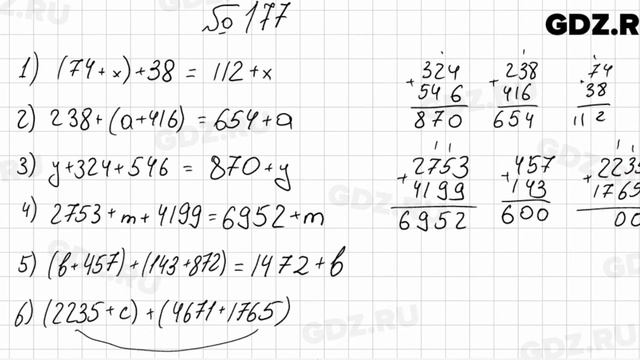 № 177
GDZ.R
1) (74+x)+38 = 112+x
2) 238+(a+416) = 654+a
3) y+324+546 = 870+y
4) 2753+m+4199=6952+m
5) (b+457)+(143+872)=1472+b
6) (2235+c)+(4671+1765)
324
+ 546
870
238
+ 416
654
74
38
112
2753
+ 4199
6952
457
+ 143
600
2235
+ 1765
00
GDZ.RU